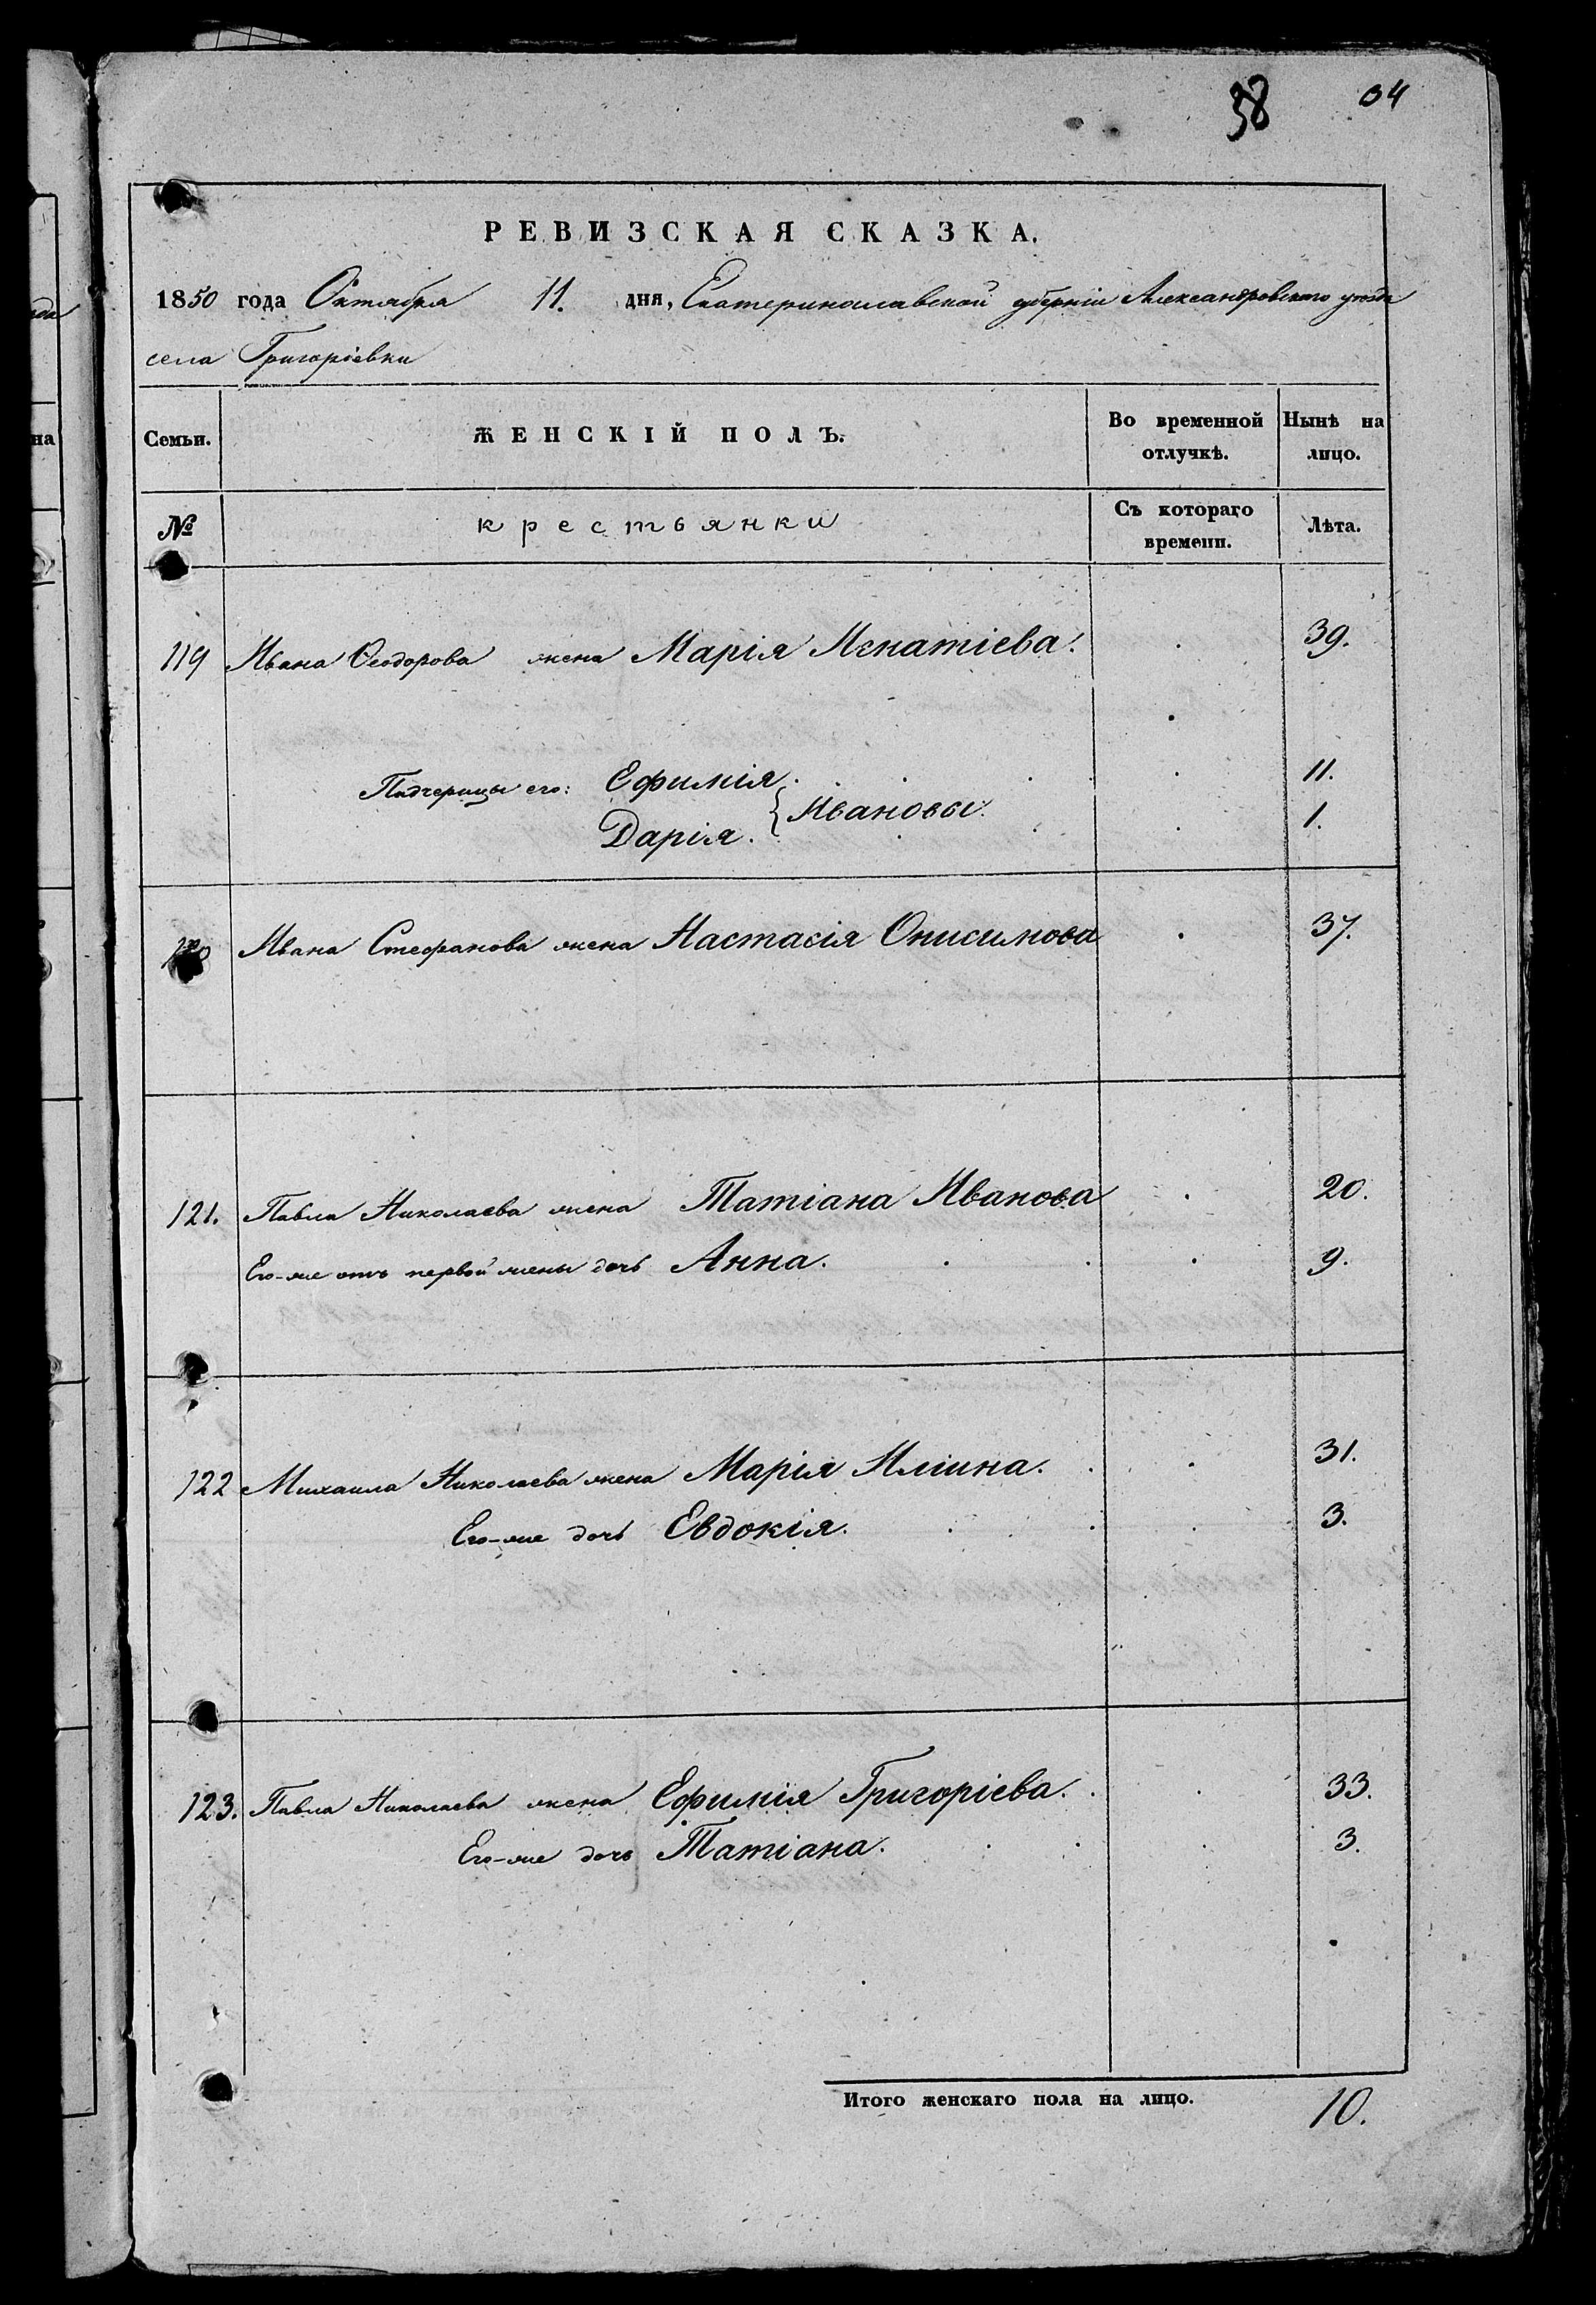 38 34
РЕВИЗСКАЯ СКАЗКА.
1850 года Октября 11. дня, Екатеринославской губерніи Александровского уезда
села Григоріевки
Семьи. ЖЕНСКІЙ ПОЛЪ. Во временной отлучкѣ. Нынѣ на лицо.
№ крестьянки Съ котораго времени. Лѣта.
119 Ивана Ѳеодорова жена Марія Игнатіева. 39.
Падчерицы его: Ефимія. 11.
Ивановы.
Дарія. 1.
120 Ивана Стефанова жена Настасія Онисимова 37.
121. Павла Николаева жена Татіана Иванова 20.
Его-же отъ первой жены дочь Анна. 9.
122 Михаила Николаева жена Марія Иліина. 31.
Его-же дочь Евдокія. 3.
123. Павла Николаева жена Ефимія Григоріева. 33.
Его-же дочь Татіана. 3.
Итого женскаго пола на лицо. 10.